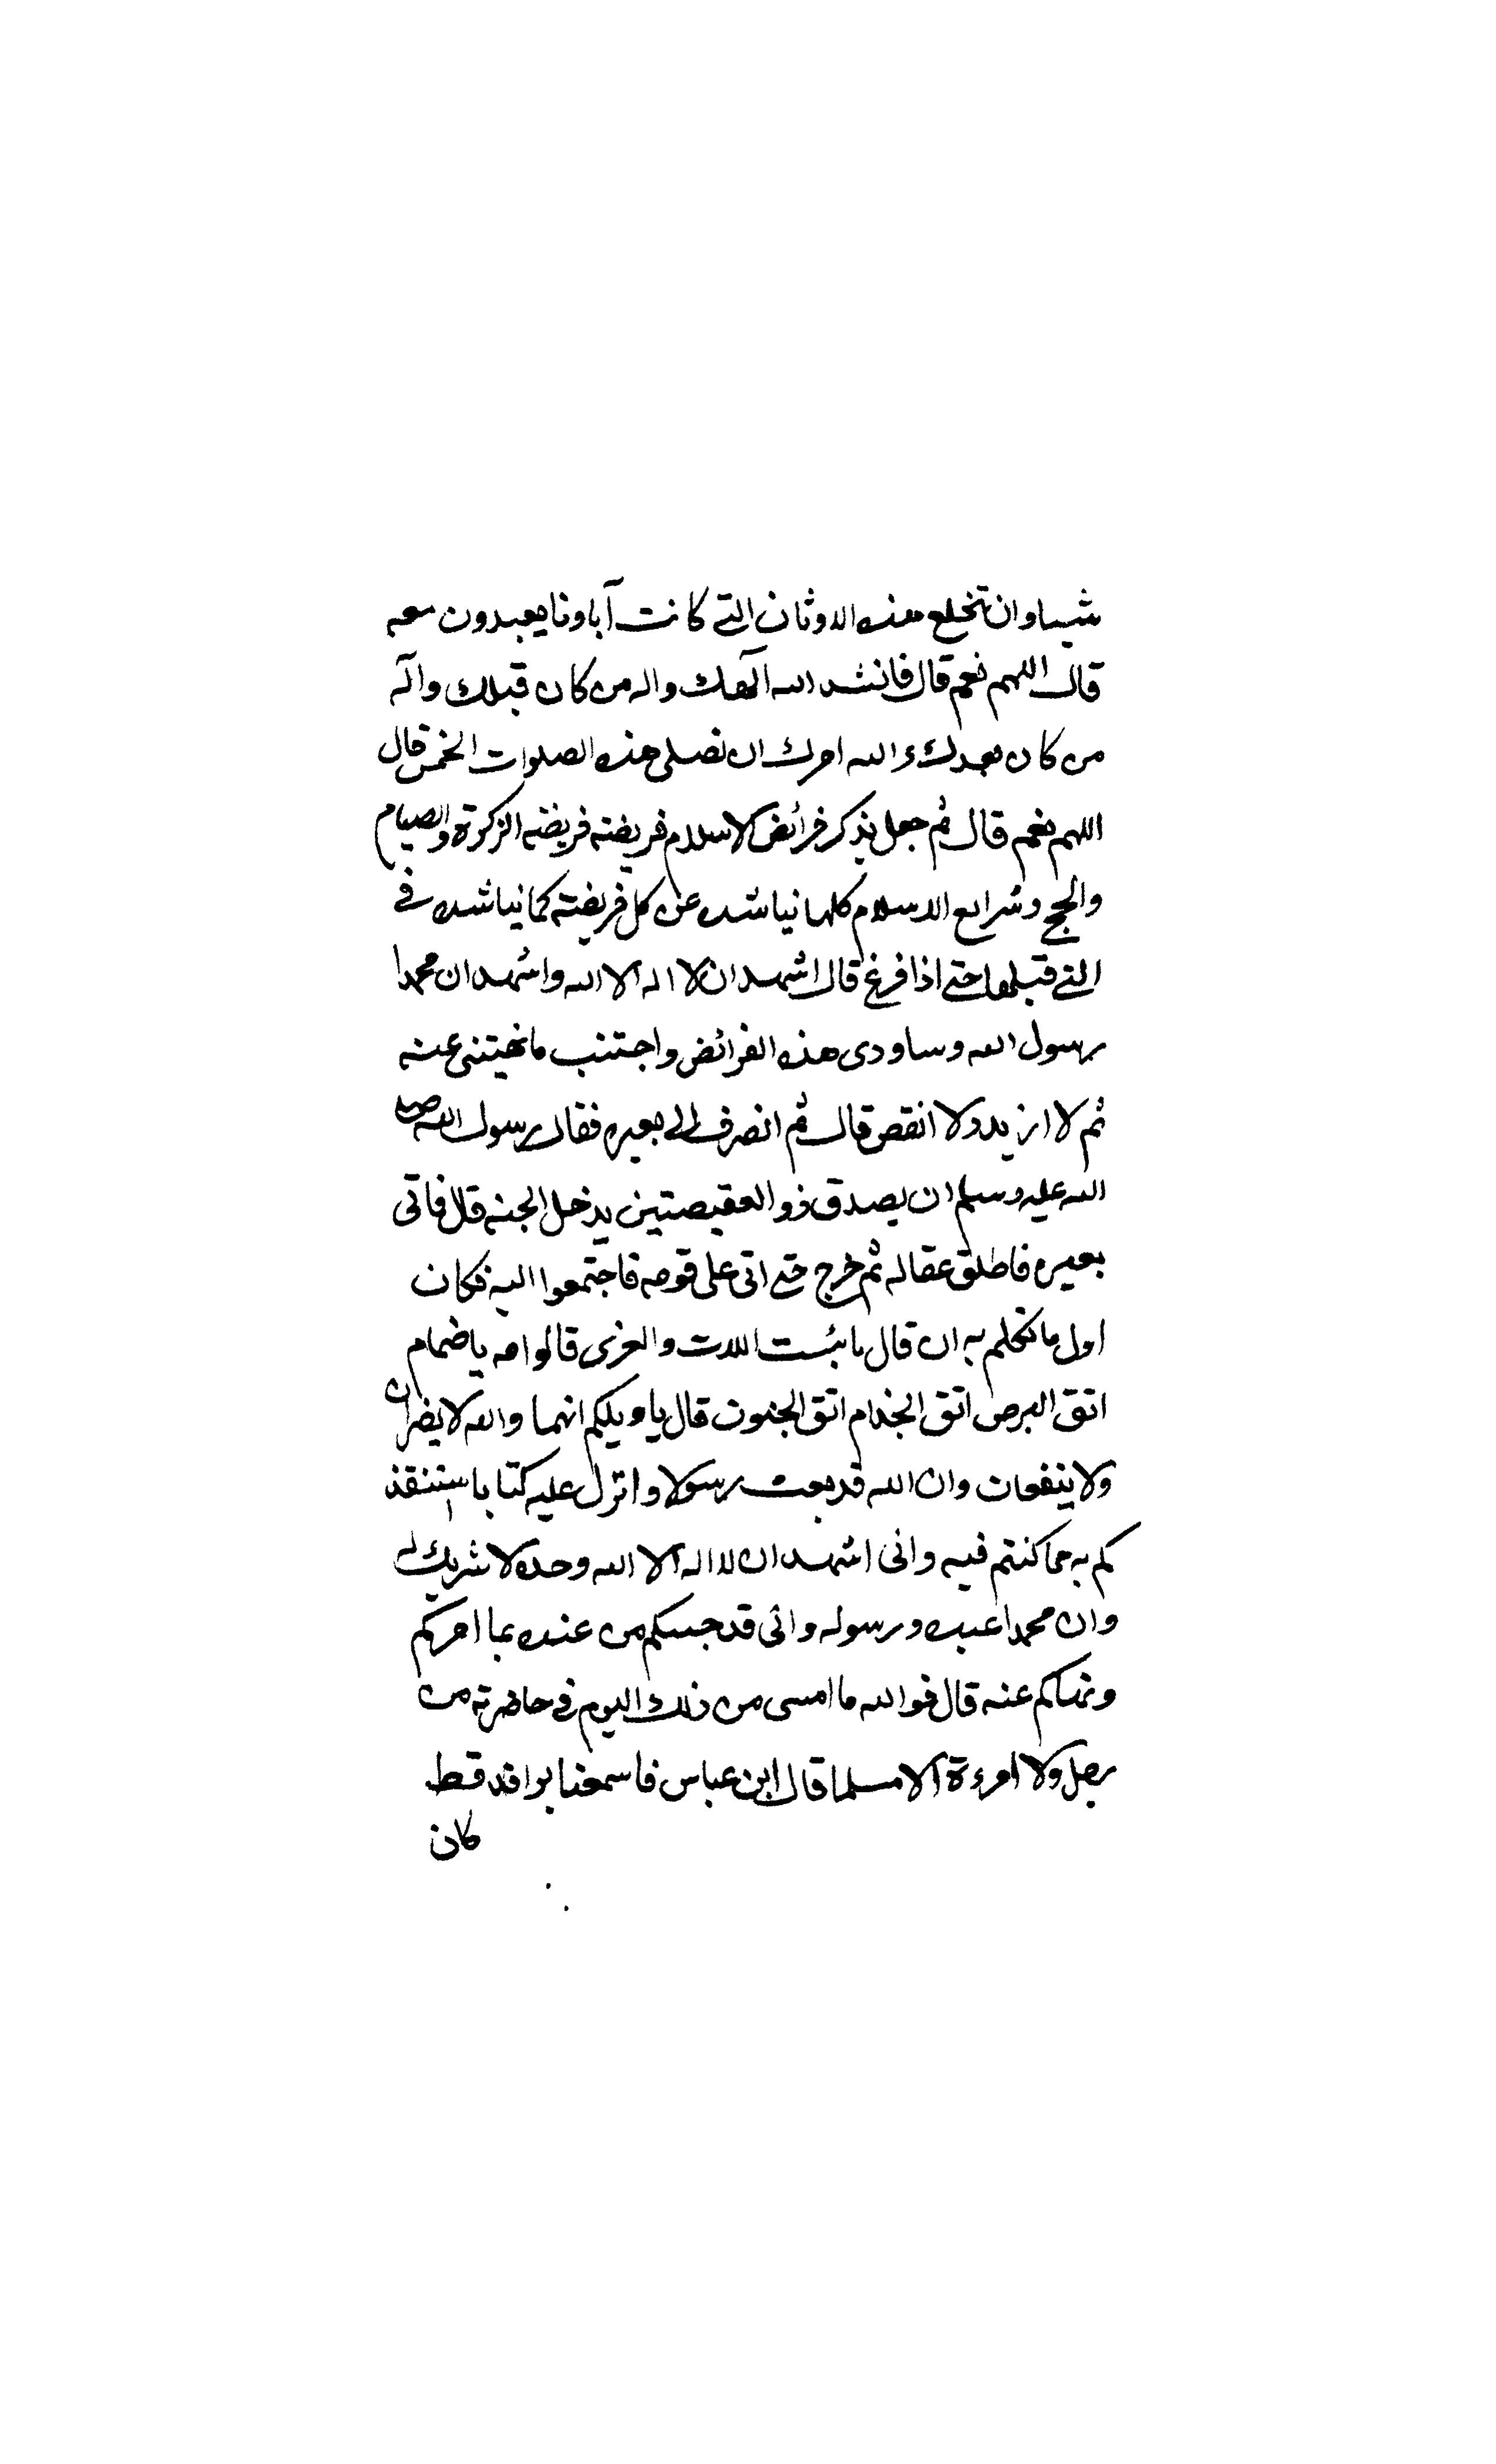 شيئا وان نخلع هذه الاوثان التى كانت آباونا يعبدون معه
قال اللهم نعم قال فانشد الله آلهك واله من كان قبلك واله
من كان بعدك ءالله امرك ان نصلى هذه الصلوات الخمس قال
اللهم نعم قال ثم جعل يذكر فرائض الاسلام فريضته فريضته الزكوة والصيام
والحج وشرايع الاسلام كلها نياشده عن كل فريضته كما نياشده فى
التى قبلها حتى اذا فرغ قال اشهد ان لا اله الا الله واشهد ان محمدا
رسول الله وساودى هذه الفرائض واجتنب ما نهيتنى عنه
ثم لا ازيد ولا انقص قال ثم انصرف الى بعيره فقال رسول الله صلى
الله عليه وسلم ان يصدق ذو العقيصتين يدخل الجنه قال فاتى
بعيره فاطلق عقاله ثم خرج حتى اتى على قومه فاجتمعوا اليه فكان
اول ما تكلم به ان قال بائست اللات والعزى قالوا مه يا ضمام
اتق البرص اتق الجذام اتق الجنون قال يا ويلكم انهما والله لا يضران
ولا ينفعان وان الله قد بعث رسولا وانزل عليه كتابا استنقذ
كم به مما كنتم فيه وانى اشهد ان لا اله الا الله وحده لا شريك له
وان محمدا عبده ورسوله وانى قد جئتكم من عنده بما امركم
ونهاكم عنه قال فوالله ما امسى من ذلك اليوم فى حاضرته من
رجل ولا امرءة الا مسلما قال ابن عباس فما سمعنا بوافد قط
كان